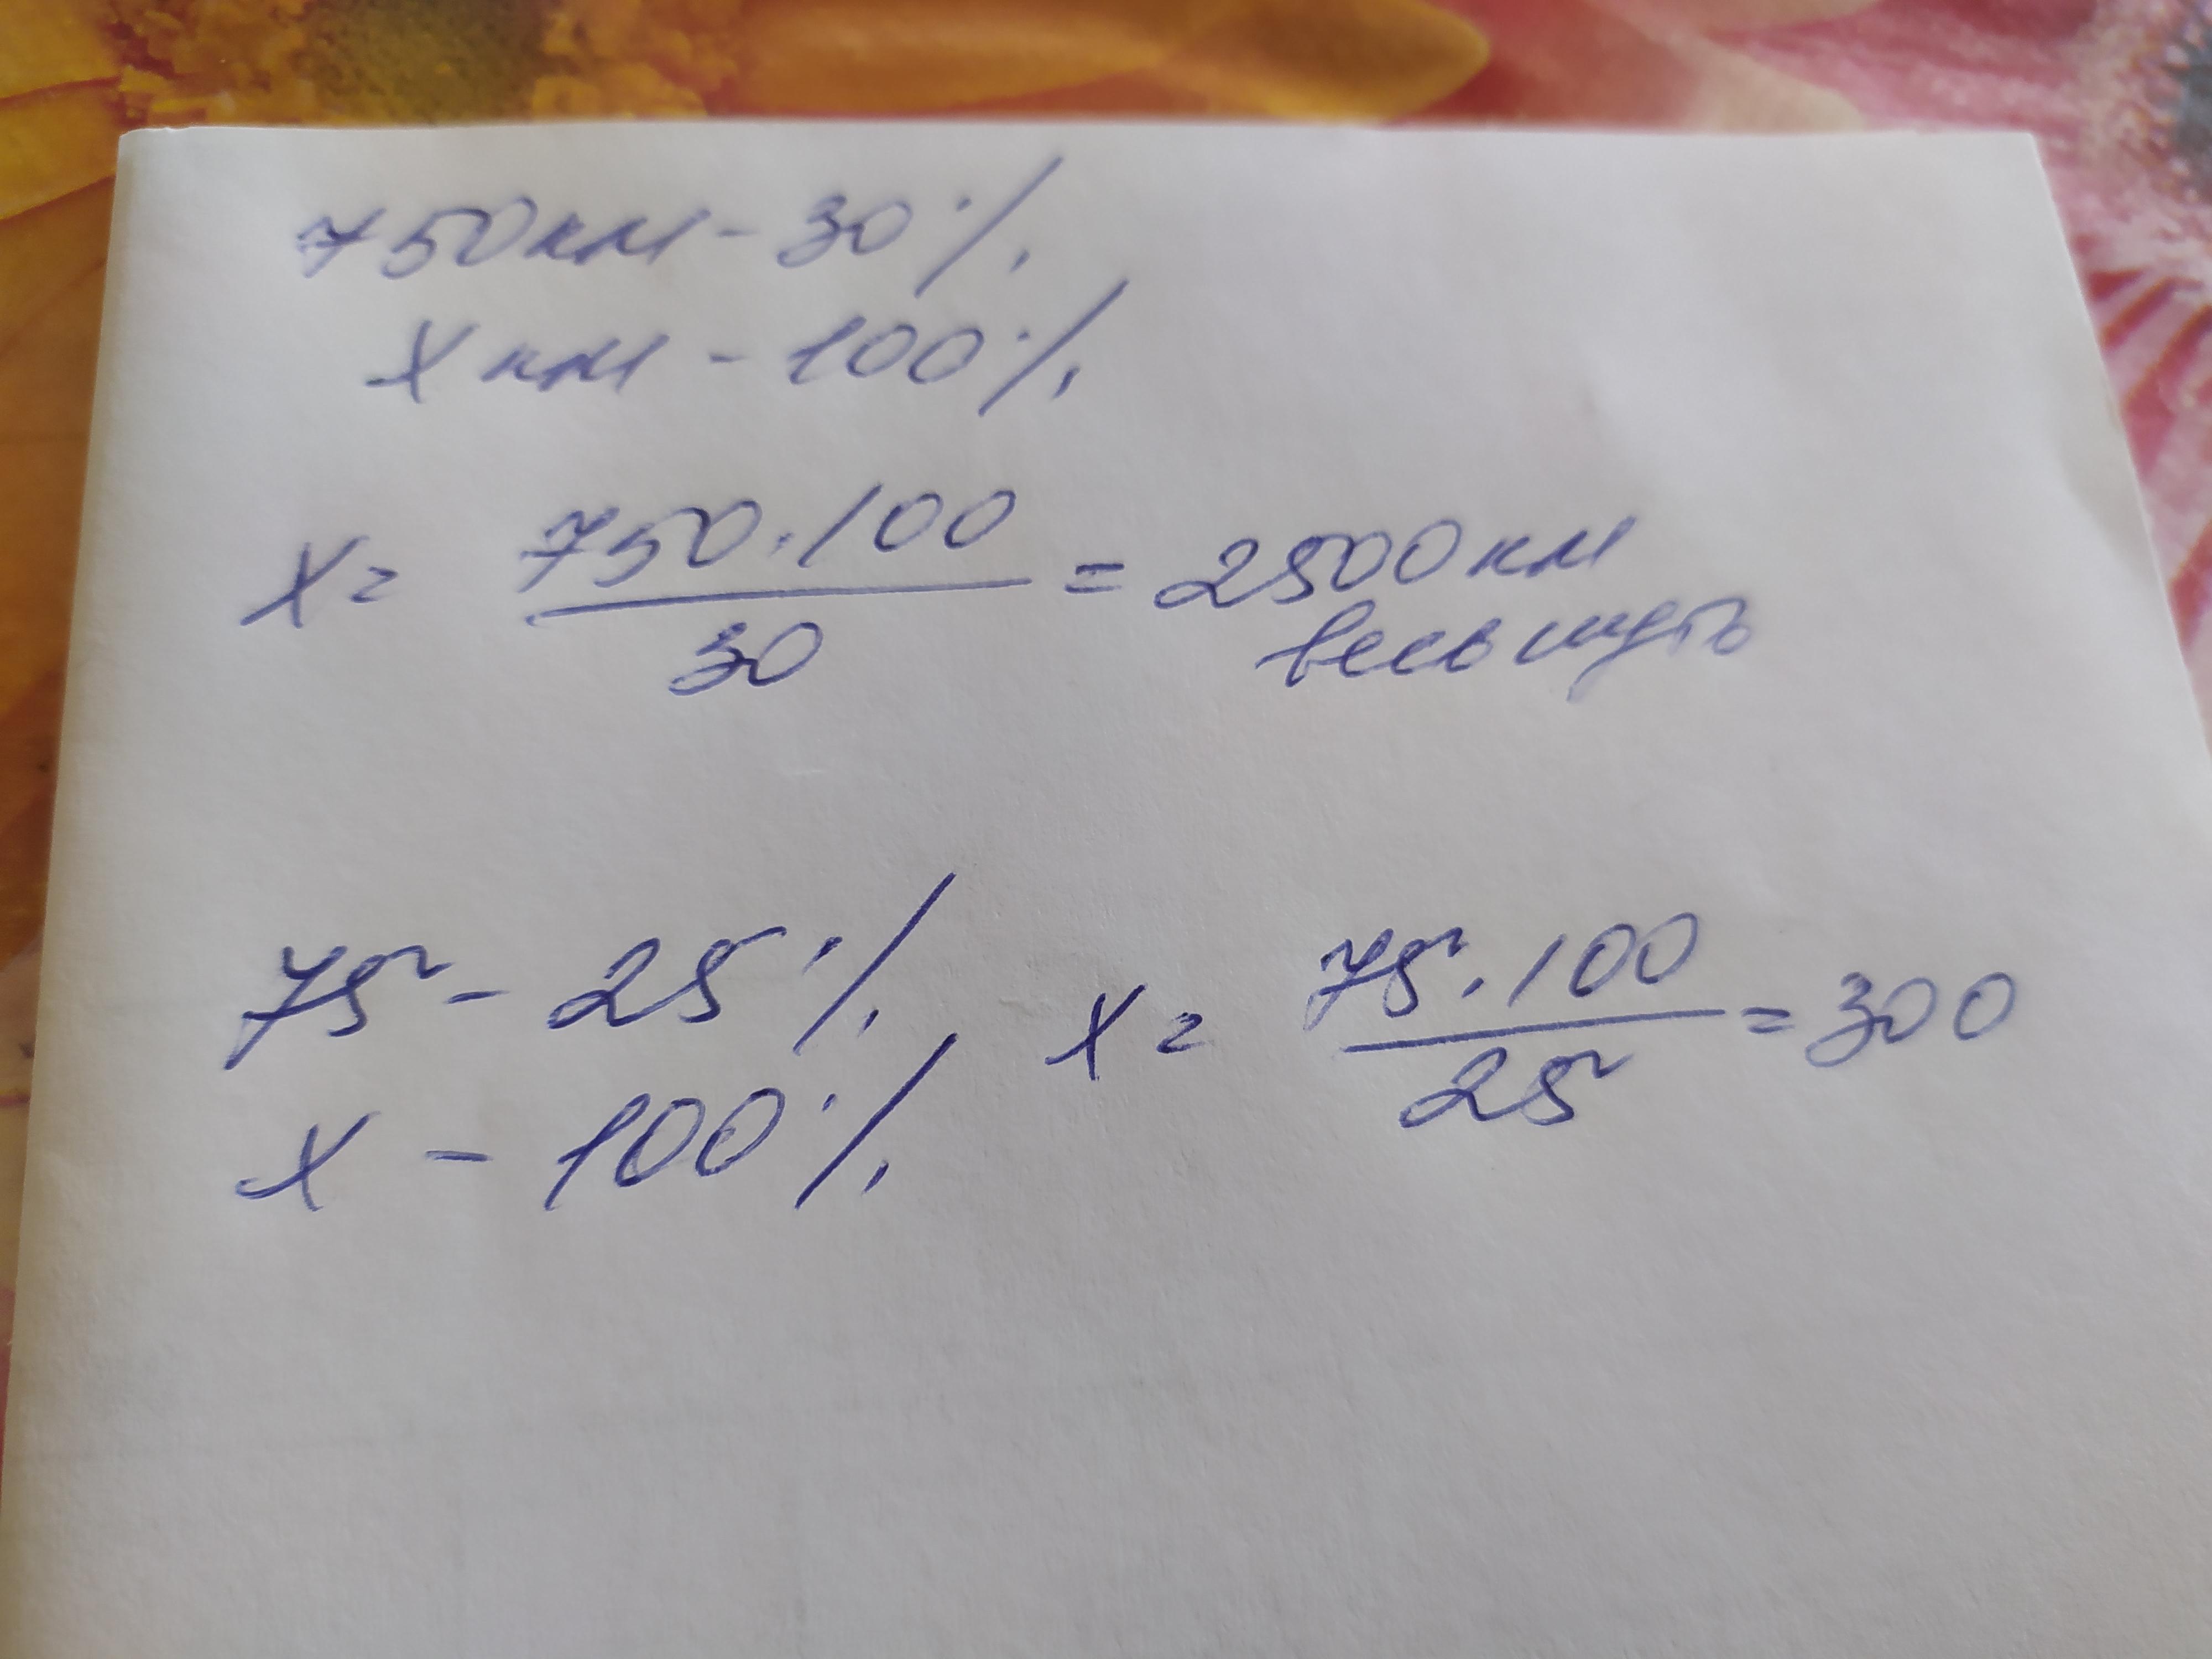 750км - 30%
х км - 100%
х = 750 · 100 / 30 = 2500 км
весь путь
75 - 25% х = 75 · 100 / 25 = 300
х - 100%